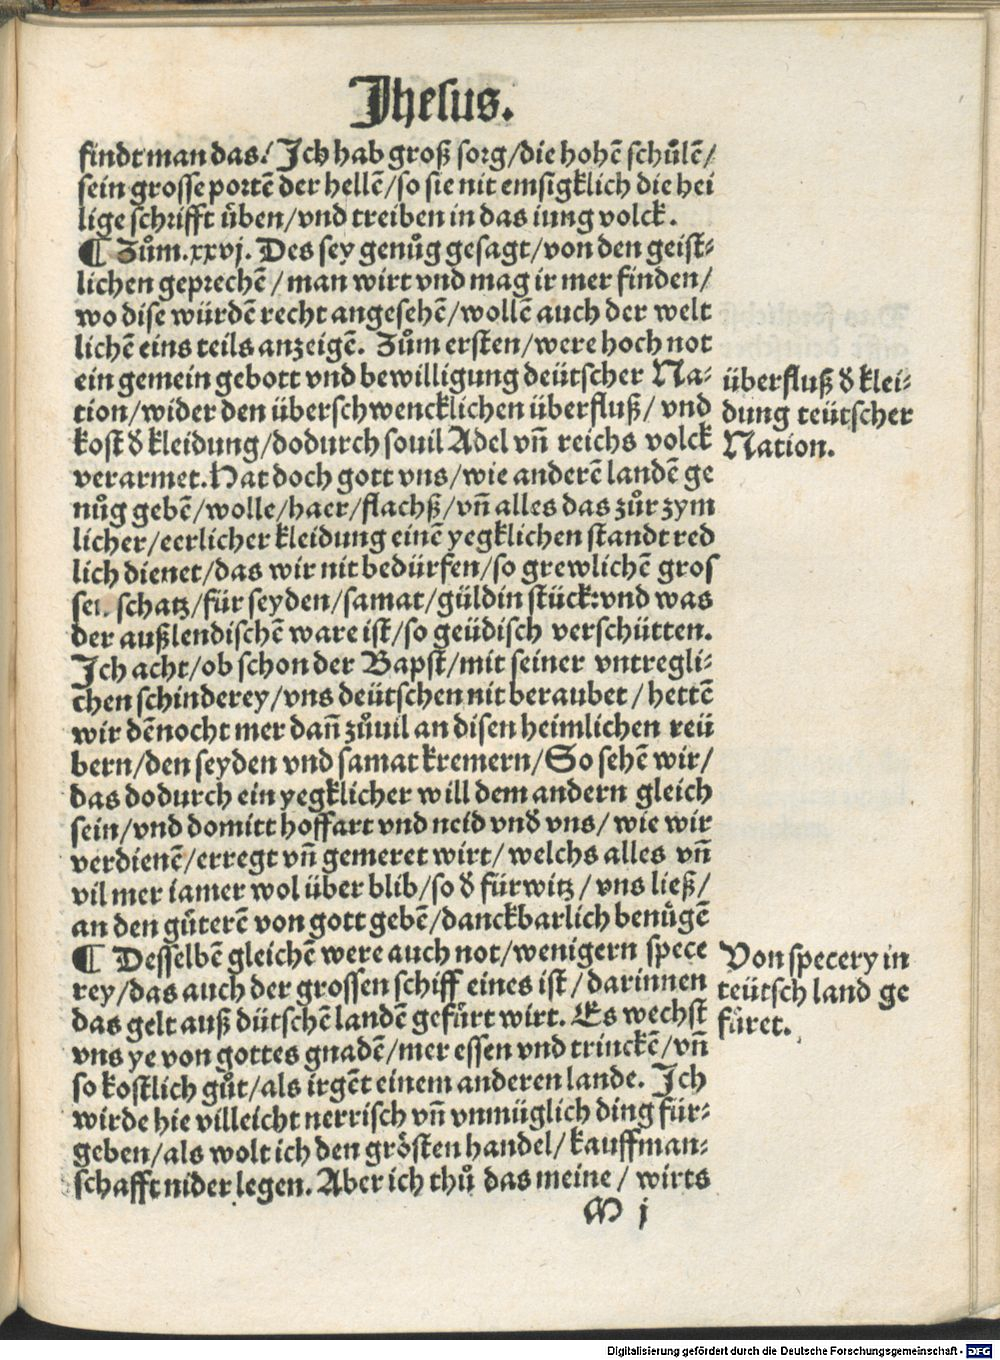 Jhesus.
findt man das? Ich hab groß sorg/die hohē schůlē/
sein grosse portē der hellē/so sie nit emsigklich die hei
lige schrifft üben/vnd treiben in das iung volck.
¶ Zům.xxvj. Des sey genůg gesagt/von den geist⸗
lichen geprechē/man wirt vnd mag ir mer finden/
wo dise würdē recht angesehē/wollē auch der welt
lichē eins teils anzeigē. Zům ersten/were hoch not
ein gemein gebott vnd bewilligung deütscher Na⸗
tion/wider den überschwencklichen überfluß/vnd
kost ď kleidung/dodurch souil Adel vn̄ reichs volck
verarmet.Hat doch gott vns/wie anderē landē ge
nůg gebē/wolle/haer/flachß/vn̄ alles das zůr zym
licher/eerlicher kleidung einē yegklichen standt red
lich dienet/das wir nit bedürfen/so grewlichē gros
sen schatz/für seyden/samat/güldin stück:vnd was
der außlendischē ware ist/so geüdisch verschütten.
Ich acht/ob schon der Bapst/mit seiner vntregli⸗
chen schinderey/vns deütschen nit beraubet/hettē
wir dēnocht mer dan̄ zůuil an disen heimlichen reü
bern/den seyden vnd samat kremern/So sehē wir/
das dodurch ein yegklicher will dem andern gleich
sein/vnd domitt hoffart vnd neid vnď vns/wie wir
verdienē/erregt vn̄ gemeret wirt/welchs alles vn̄
vil mer iamer wol über blib/so ď fürwitz/vns ließ/
an den gůterē von gott gebē/danckbarlich benůgē
¶ Desselbē gleichē were auch not/wenigern spece
rey/das auch der grossen schiff eines ist/darinnen
das gelt auß dütschē landē gefůrt wirt. Es wechst
vns ye von gottes gnadē/mer essen vnd trinckē/vn̄
so kostlich gůt/als irgēt einem anderen lande. Ich
wirde hie villeicht nerrisch vn̄ vnmüglich ding für⸗
geben/als wolt ich den grösten handel/kauffman⸗
schafft nider legen. Aber ich thů das meine/wirts
M j
überfluß ď klei⸗
dung teütscher
Nation.
Von specery in
teütsch land ge
fůret.
Digitalisierung gefördert durch die Deutsche Forschungsgemeinschaft - DFG